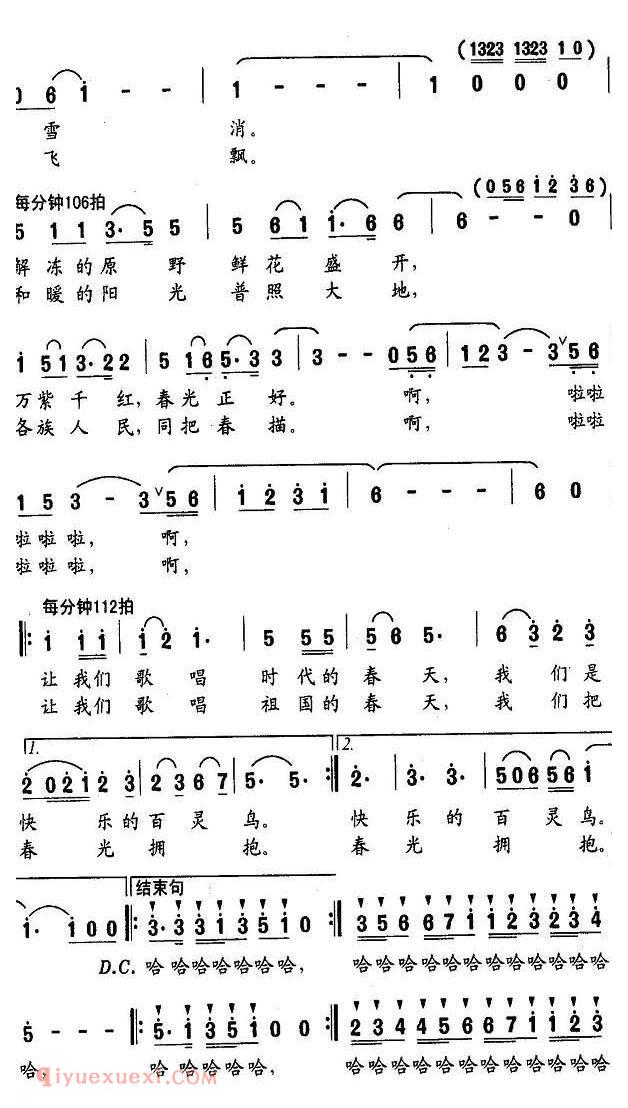 (1323 1323 1 0)
0 6 1 - - | 1 - - - | 1 0 0 0
雪 消。
飞 飘。
每分钟106拍 (0 5 6 1 2 3 6)
5 1 1 3· 5 5 | 5 6 1 1· 6 | 6 6 - - 0
解 冻 的 原 野 鲜 花 盛 开,
和 暖 的 阳 光 普 照 大 地,
1 5 1 3· 2 2 | 5 1 6 5· 3 3 | 3 - - 0 5 6 | 1 2 3 - 3 ∨ 5 6
万 紫 千 红, 春 光 正 好。 啊, 啦啦
各 族 人 民, 同 把 春 描。 啊, 啦啦
1 5 3 - 3 ∨ 5 6 | 1 2 3 1 | 6 - - - | 6 0
啦 啦 啦, 啊,
啦 啦 啦, 啊,
每分钟112拍
1 1 1 | 1 2 1· | 5 5 5 | 5 6 5· | 6 3 2 3
让 我 们 歌 唱 时 代 的 春 天, 我 们 是
让 我 们 歌 唱 祖 国 的 春 天, 我 们 把
1. 2.
2 0 2 1 2 3 | 2 3 6 7 | 5· 5· :| 2· 3· 3· | 5 0 6 5 6 1
快 乐 的 百 灵 鸟。 快 乐 的 百 灵 鸟。
春 光 拥 抱。 春 光 拥 抱。
结束句
1· 1 0 0 |: 3· 3 3 1 3 5 1 0 :| 3 5 6 6 7 1 1 2 3 2 3 4
D.C. 哈 哈哈哈哈哈哈, 哈哈哈哈哈哈哈哈哈哈哈
5 - - - |: 5· 1 3 5 1 0 0 :| 2 3 4 4 5 6 6 7 1 1 2 3
哈, 哈 哈哈哈哈, 哈哈哈哈哈哈哈哈哈哈哈哈
qiyuexuexi.com